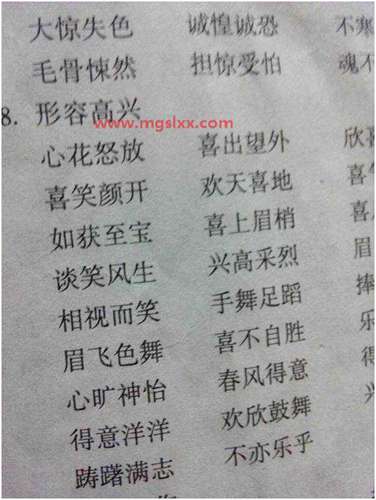 大惊失色 诚惶诚恐 不寒
毛骨悚然 担惊受怕 魂不
8. 形容高兴
www.mgslxx.com
心花怒放 喜出望外 欣喜
喜笑颜开 欢天喜地 喜
如获至宝 喜上眉梢 喜
谈笑风生 兴高采烈 眉
相视而笑 手舞足蹈 捧
眉飞色舞 喜不自胜 乐
心旷神怡 春风得意 得
得意洋洋 欢欣鼓舞
踌躇满志 不亦乐乎